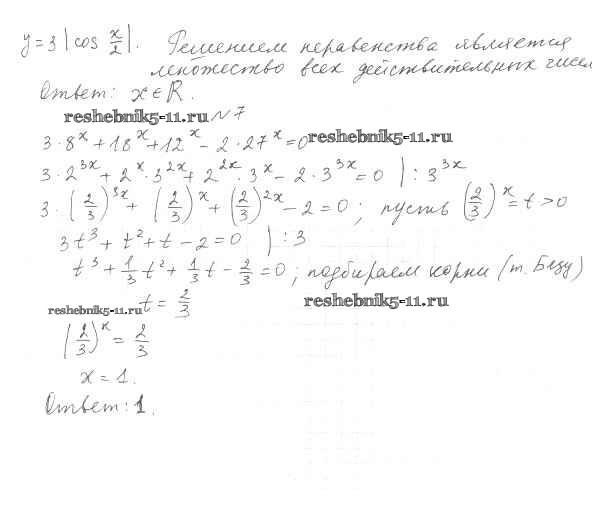 y = 3 |cos x/2|. Решением неравенства является
множество всех действительных чисел
Ответ: x ∈ R.
reshebnik5-11.ru №7
3·8^x + 18^x + 12^x - 2·27^x = 0 reshebnik5-11.ru
3·2^{3x} + 2^x·3^{2x} + 2^{2x}·3^x - 2·3^{3x} = 0 | : 3^{3x}
3·(2/3)^{3x} + (2/3)^x + (2/3)^{2x} - 2 = 0; пусть (2/3)^x = t > 0
3t³ + t² + t - 2 = 0 | : 3
t³ + 1/3 t² + 1/3 t - 2/3 = 0; подбираем корни (т. Безу)
reshebnik5-11.ru t = 2/3 reshebnik5-11.ru
(2/3)^x = 2/3
x = 1.
Ответ: 1.